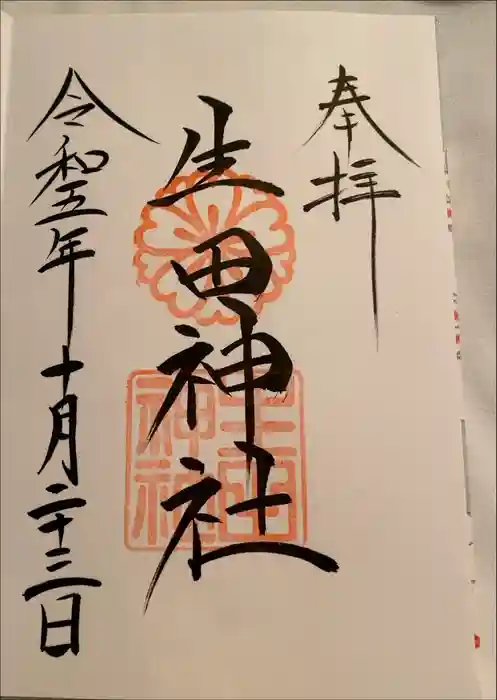 奉拝
生田神社
生田
神社
令和五年十月二十三日